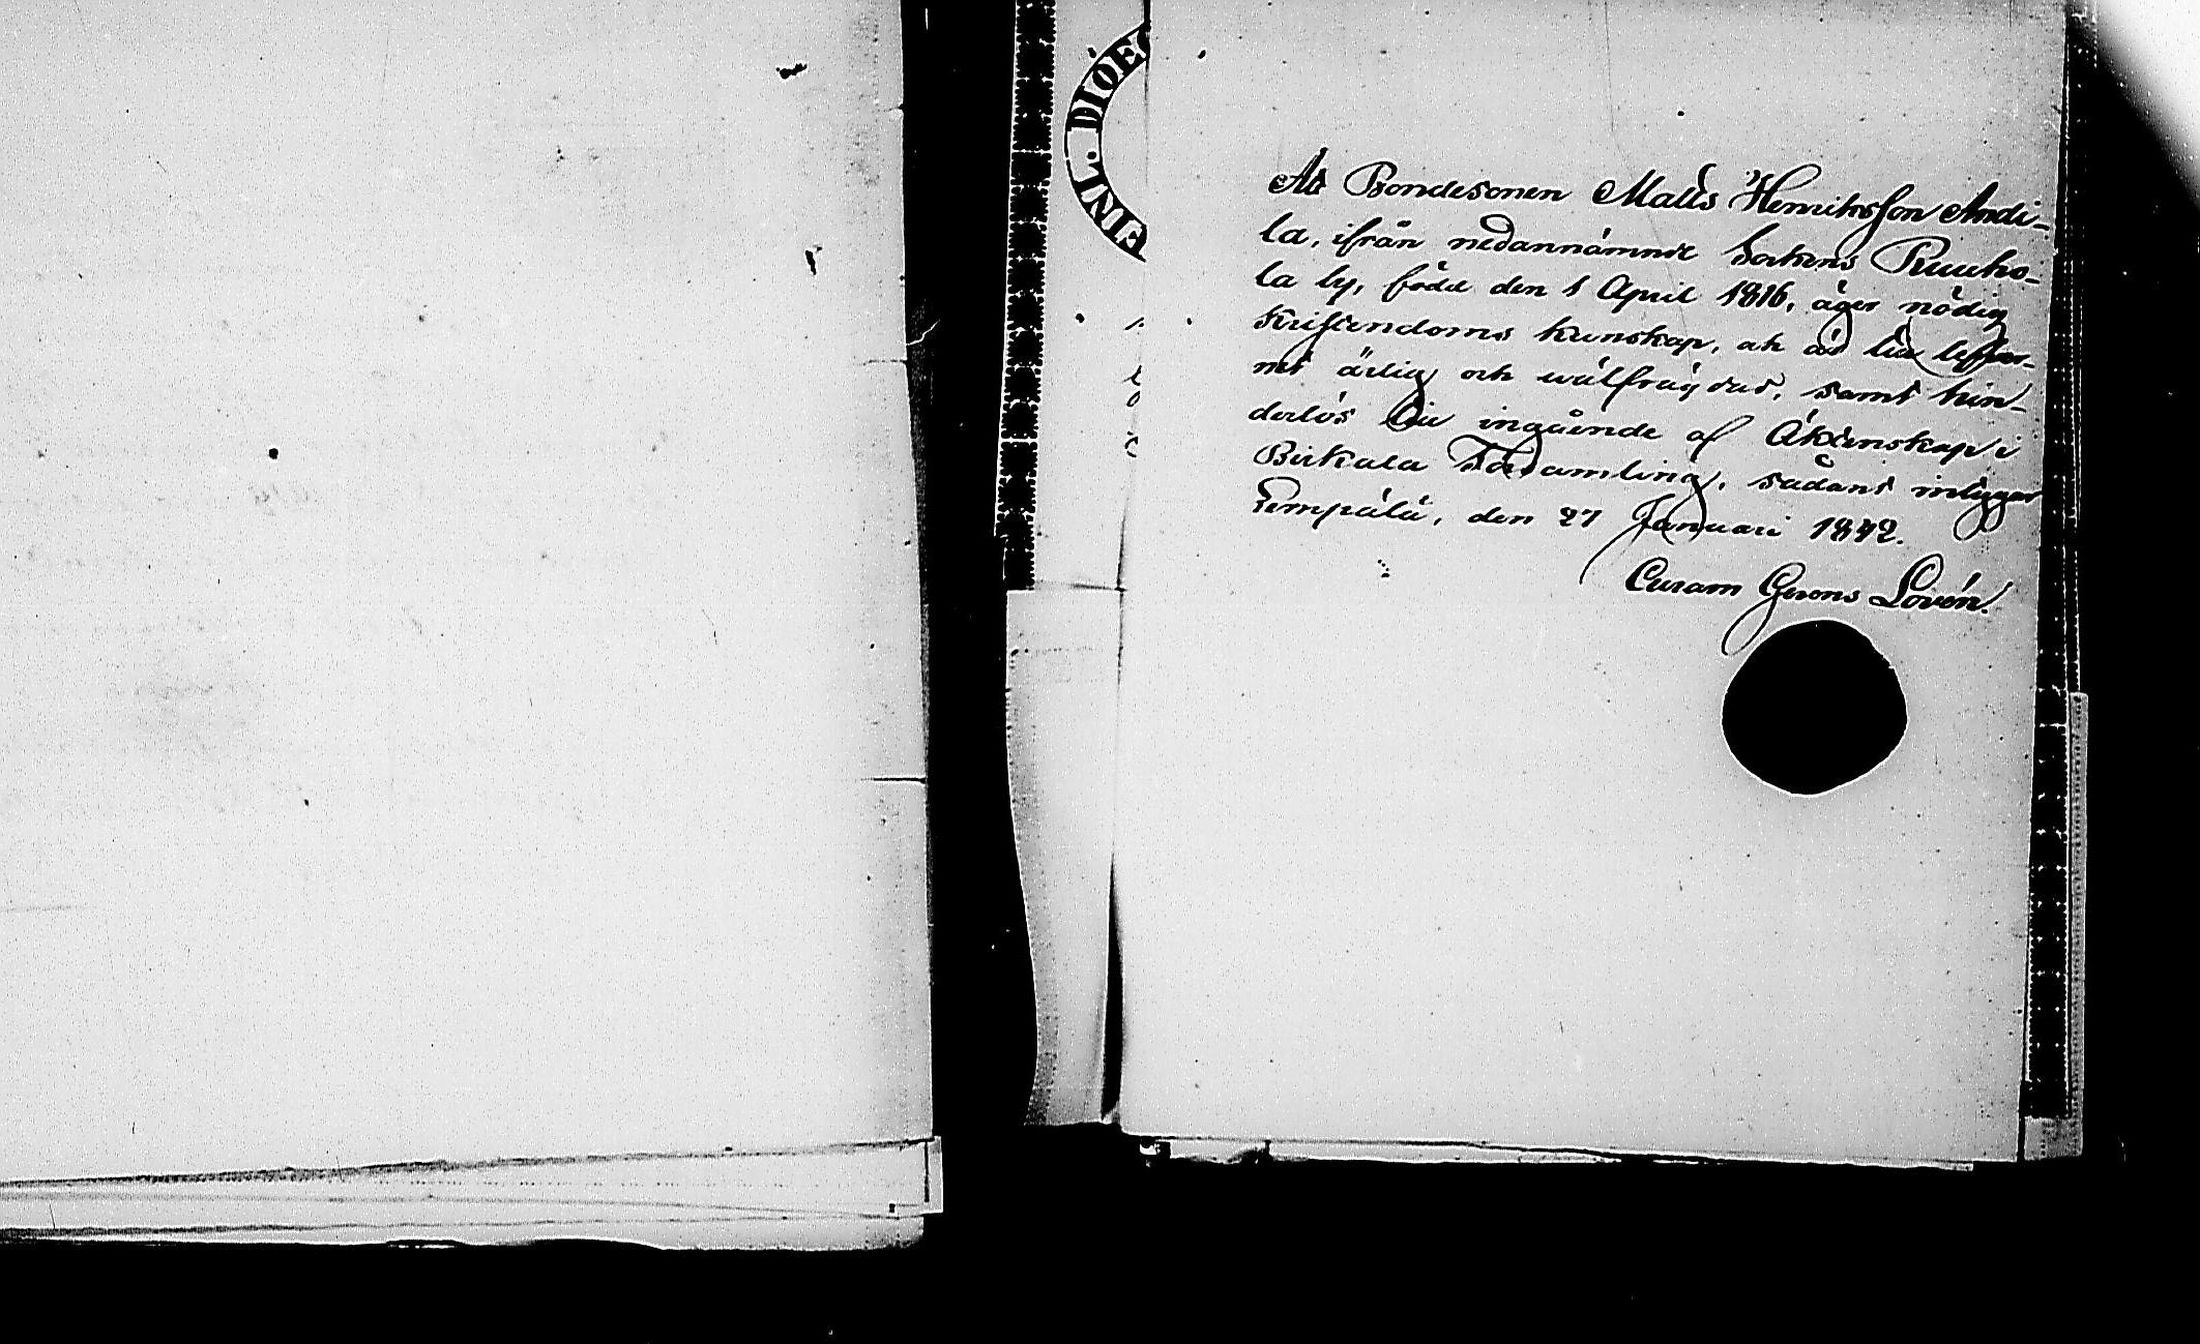 FINL. DIOE
At Bondesonen Matts Henriksson Andi-
la, ifrån nedannämnde Sockens Kuuho-
la by, född den 1 April 1816, äger nödig
Kristendoms kunskap, och är till leffer-
net ärlig och wälfräjdad, samt hin-
derlös till ingående af Äktenskap i
Birkala Församling, sådant intygar
Lempälä, den 27 Januari 1842.
Curam Gerens Lovén.